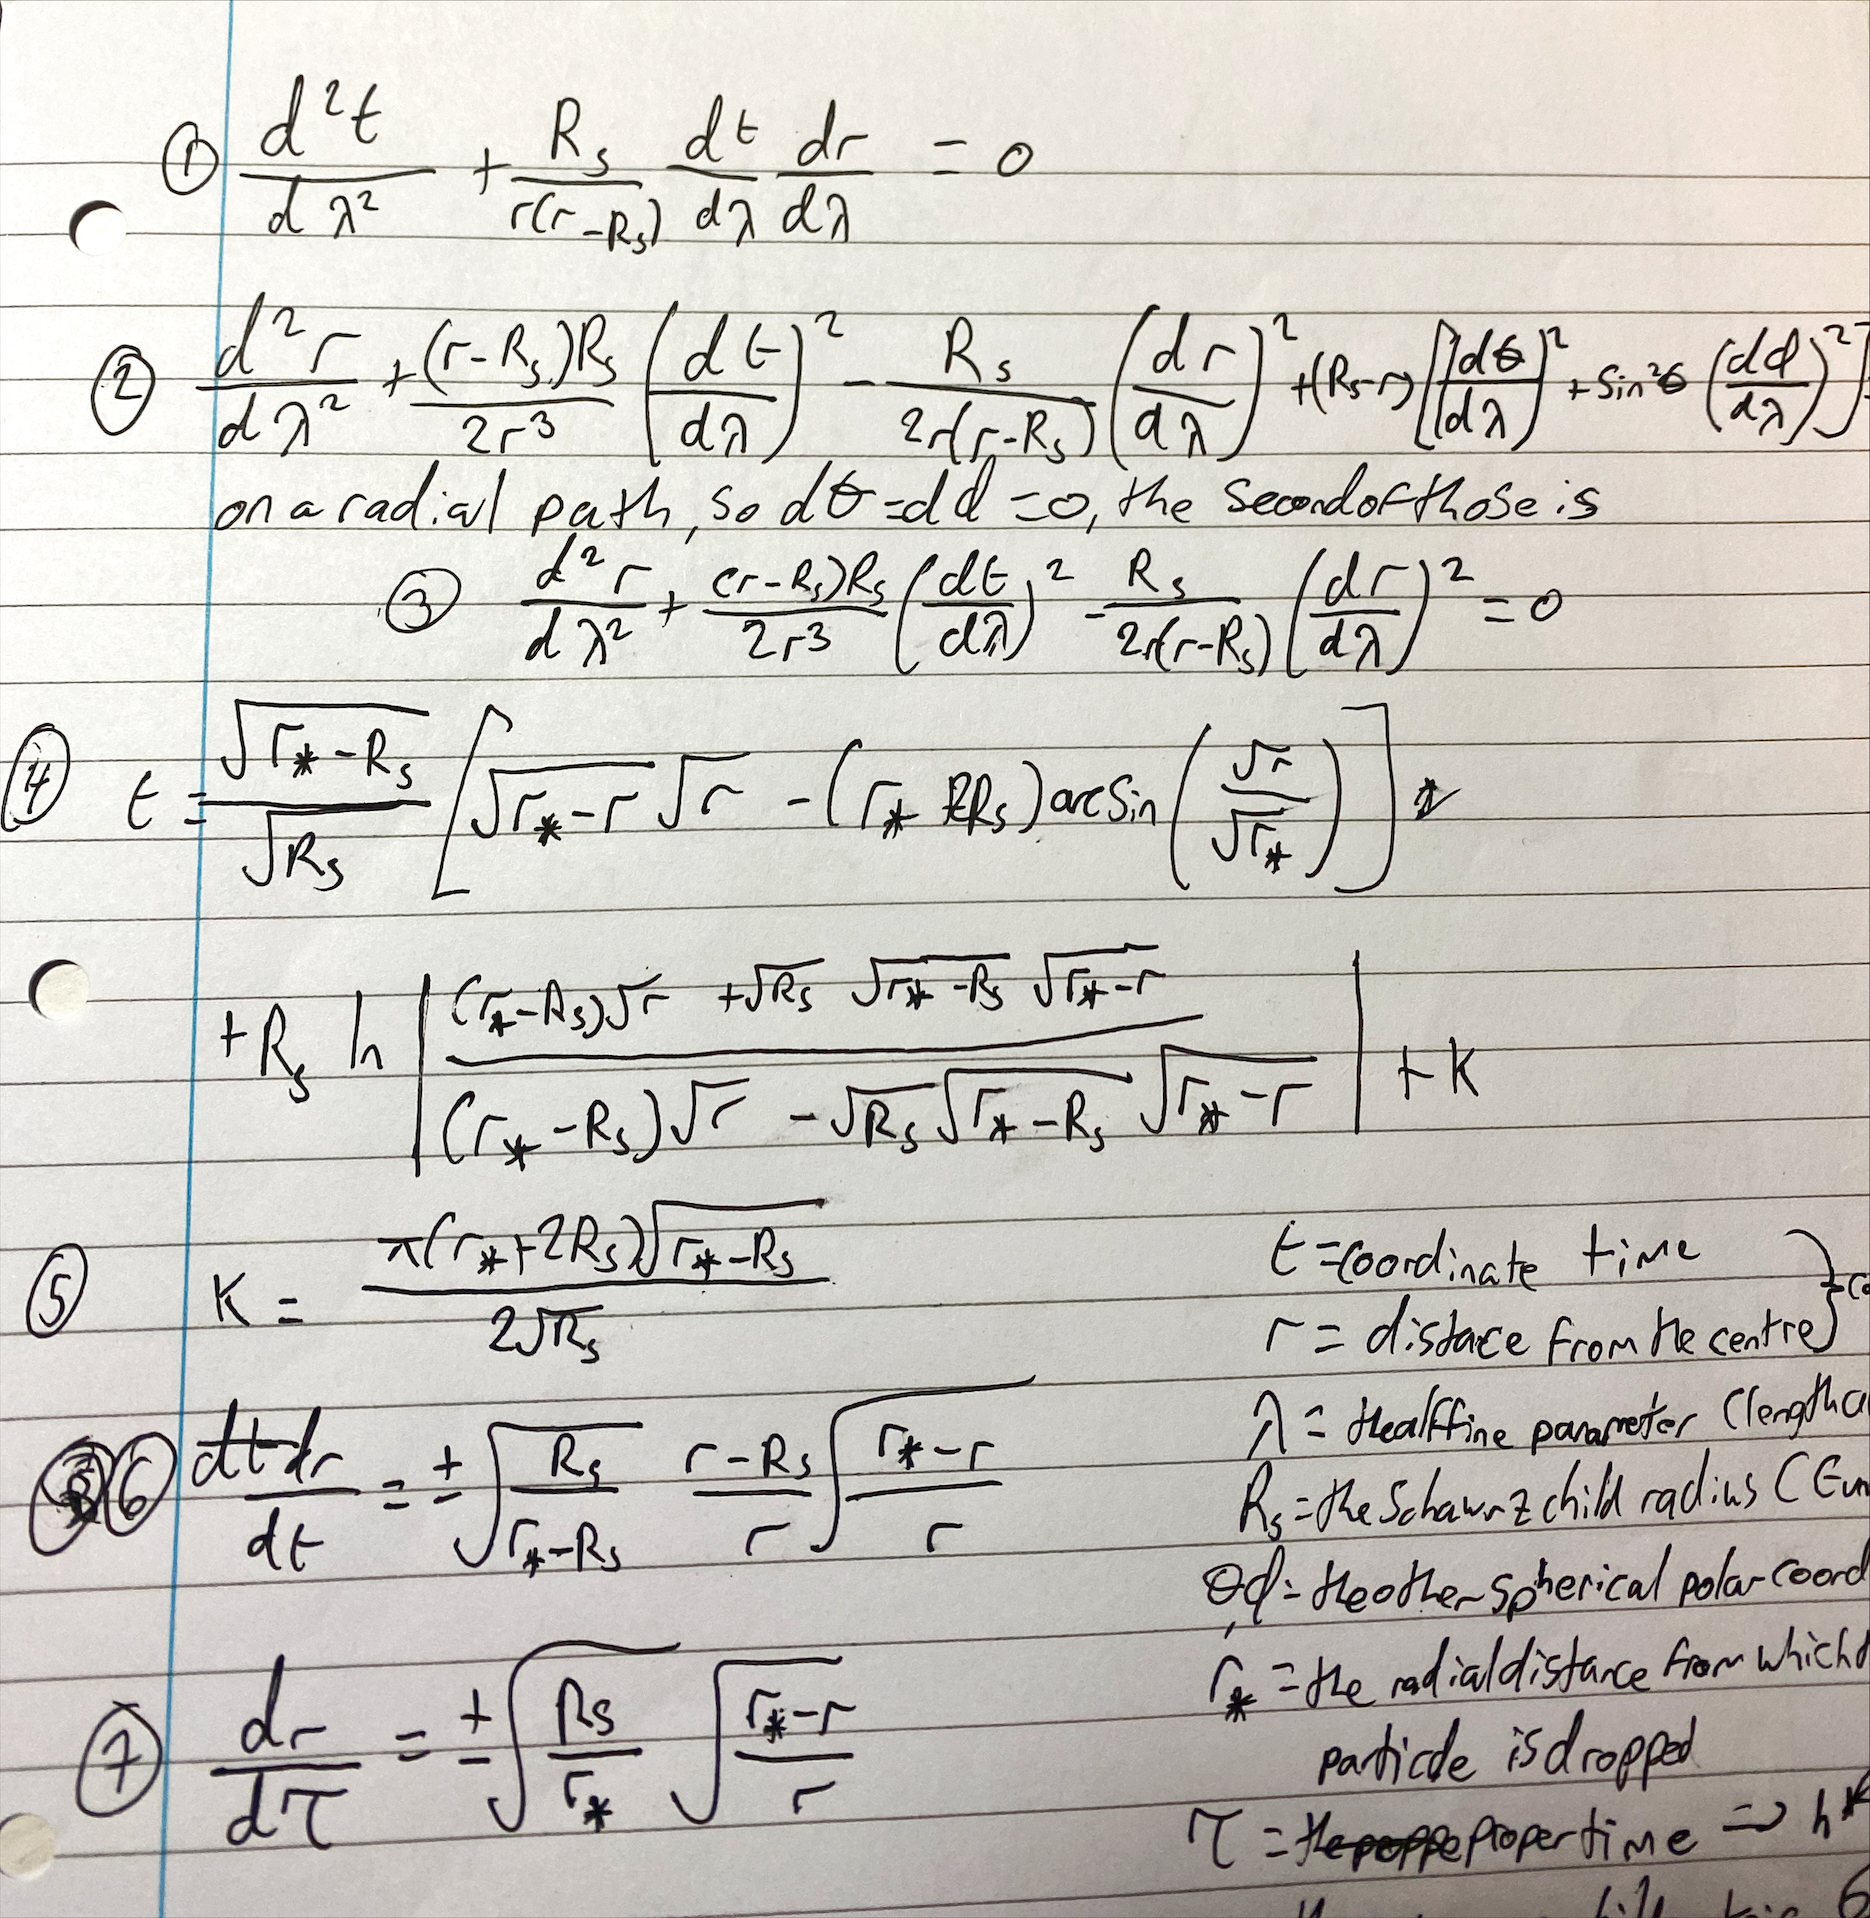 ① d²t/dλ² + Rₛ/r(r-Rₛ) dt/dλ dr/dλ = 0
② d²r/dλ² + (r-Rₛ)Rₛ/2r³ (dt/dλ)² - Rₛ/2r(r-Rₛ) (dr/dλ)² + (Rₛ-r)[(dθ/dλ)² + sin²θ (dϕ/dλ)²]
on a radial path, so dθ=dϕ=0, the second of those is
③ d²r/dλ² + (r-Rₛ)Rₛ/2r³ (dt/dλ)² - Rₛ/2r(r-Rₛ) (dr/dλ)² = 0
④ t = √(r*-Rₛ)/√Rₛ [√(r*-r) √r - (r* Rₛ) arcsin(√r/√r*)]
+Rₛ ln |((r*-Rₛ)√r + √Rₛ √(r*-Rₛ) √(r*-r))/((r*-Rₛ)√r - √Rₛ √(r*-Rₛ) √(r*-r))| + K
⑤ K = π(r*+2Rₛ)√(r*-Rₛ)/2√Rₛ
t = coordinate time
r = distace from the centre
⑥ dr/dt = ±√(Rₛ/(r*-Rₛ)) (r-Rₛ)/r √((r*-r)/r)
λ = the affine parameter (length
Rₛ = the Schawrzchild radius (
θ,ϕ = the other spherical polar coord
⑦ dr/dτ = ±√(Rₛ/r*) √((r*-r)/r)
r* = the radial distance from which
particle is dropped
τ = proper time =>